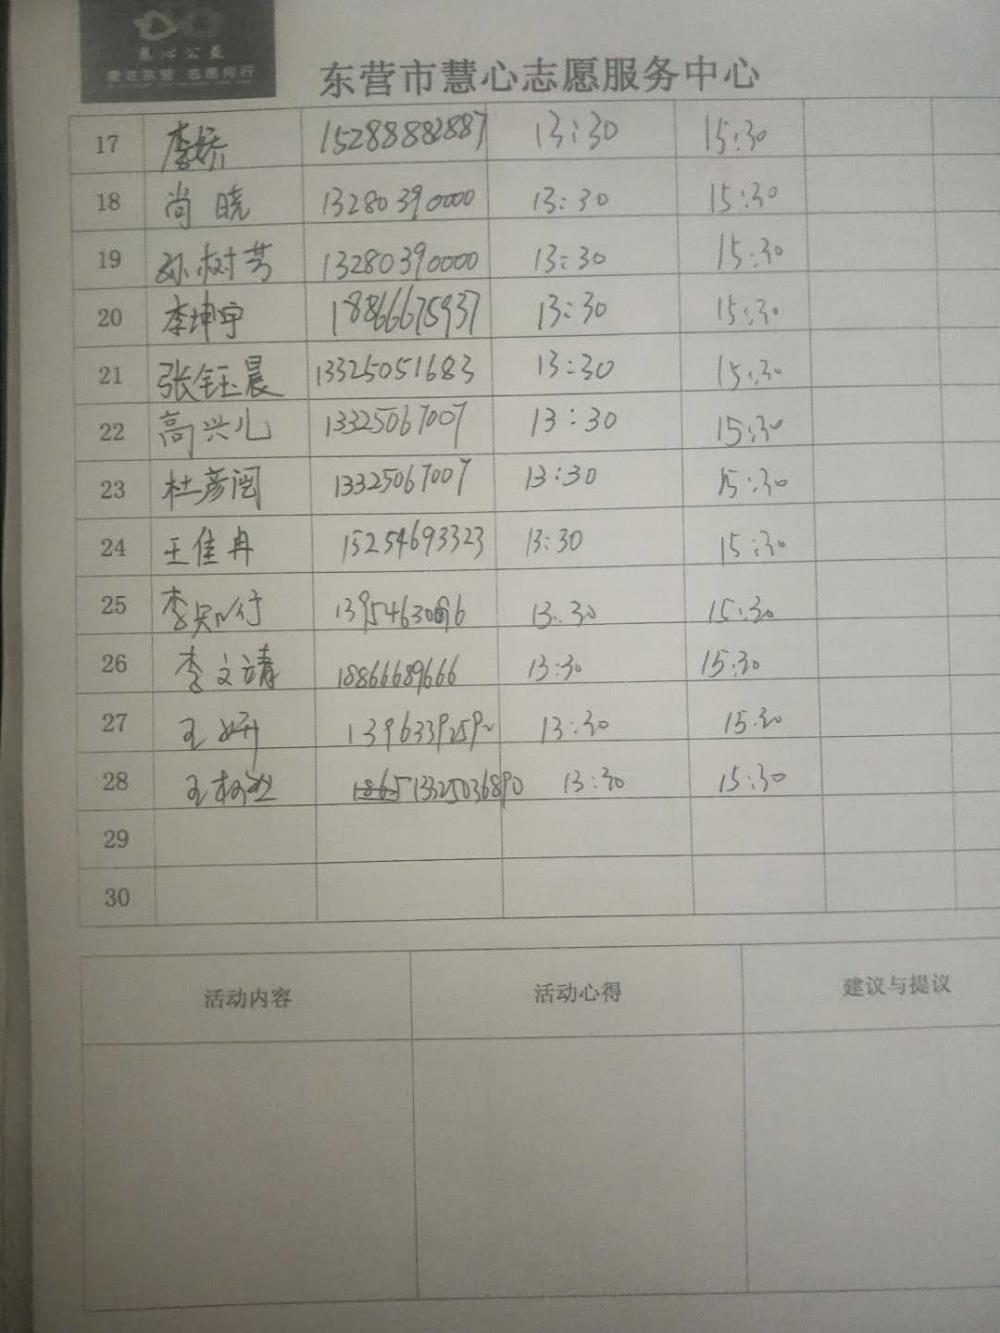 慧心公益
爱在东营 志愿同行
东营市慧心志愿服务中心
17 李娇 15288882887 13:30 15:30
18 尚晓 13280390000 13:30 15:30
19 孙树芳 13280390000 13:30 15:30
20 李坤宇 18866675937 13:30 15:30
21 张钰晨 13325051683 13:30 15:30
22 高兴儿 13325067007 13:30 15:30
23 杜彦润 13325067007 13:30 15:30
24 王佳冉 15254693323 13:30 15:30
25 13:30 15:30
26 李文靖 18866689666 13:30 15:30
27 王妍 13963392592 13:30 15:30
28 13325036890 13:30 15:30
29
30
活动内容 活动心得 建议与提议